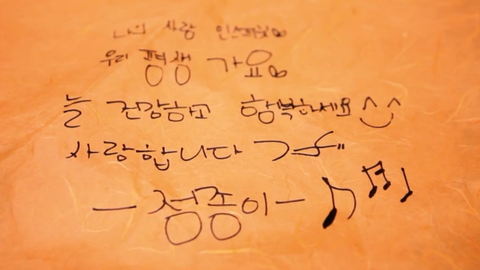 나의 사랑 인스피릿
우리 평생 가요
늘 건강하고 행복하세요 ^^
사랑합니다
- 정종이 -